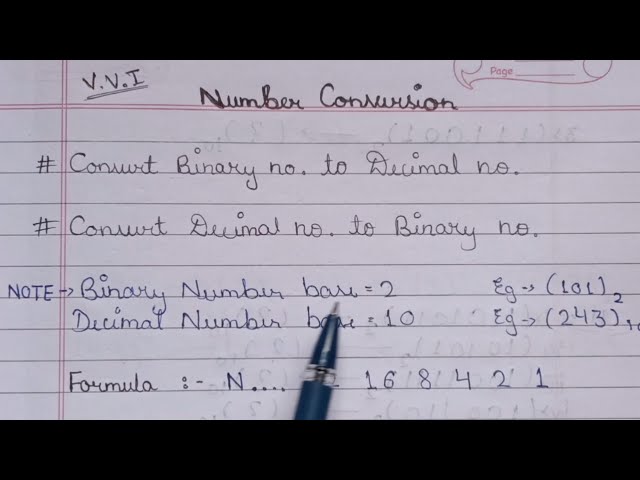 Page
V.V.I
Number Conversion
# Convert Binary no. to Decimal no.
# Convert Decimal no. to Binary no.
NOTE → Binary Number base = 2 Eg → (101)₂
Decimal Number base = 10 Eg → (243)₁₀
Formula :- N.... 16 8 4 2 1